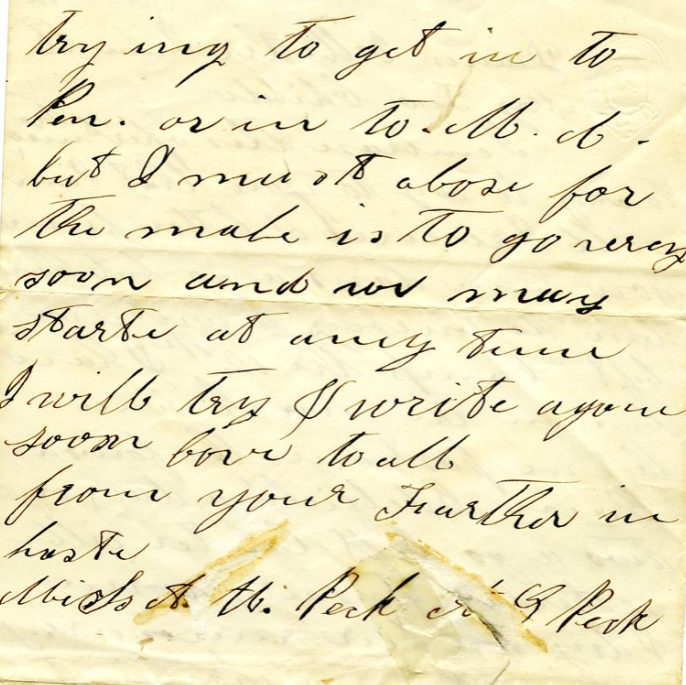 trying to get in to
Pen. or in to. M. d.
but I must close for
the male is to go verey
soon and we may
starte at any time
I will try & write again
soon love to all
from your Farther in
haste
Miss A. H. Peck A G Peck